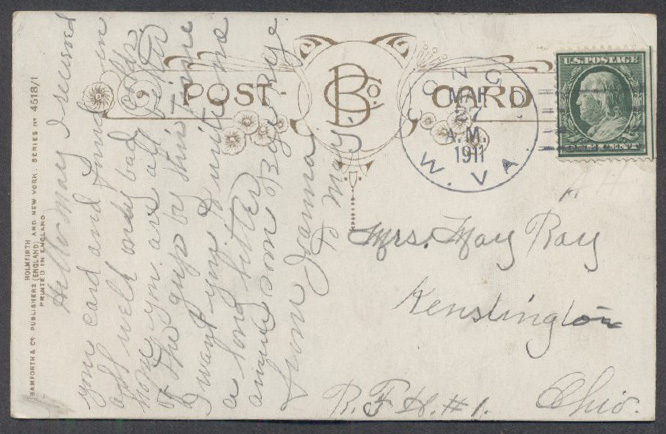 BAMFORTH & CO. PUBLISHERS (ENGLAND) AND NEW YORK. SERIES NO 4518/1
HOLMFIRTH
PRINTED IN ENGLAND
POST CARD
B Co.
CONGO
MAR
27
A.M.
1911
W. VA.
U.S. POSTAGE
ONE CENT
Hello Mary I received
your card and found in
all well only bad colds
hope you are all better
of the grip by this time
I want you to write me
a long letter
answer soon Bye Bye
From
to May
Mrs. May Ray
Kensington
R. F. D. #1. Ohio.